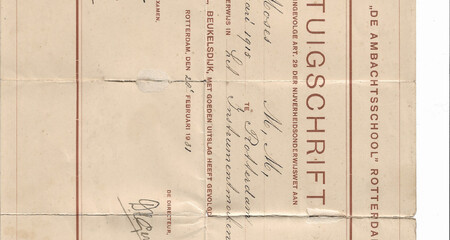 „DE AMBACHTSSCHOOL” ROTTERDA
TUIGSCHRIFT
INGEVOLGE ART. 29 DER NIJVERHEIDSONDERWIJSWET AAN
Moses M. M.
ari 1915 TE Rotterdam
ERWIJS IN het Instrumentmaken
BEUKELSDIJK, MET GOEDEN UITSLAG HEEFT GEVOLGD
ROTTERDAM, DEN 20e FEBRUARI 1931
EXAMEN.
DE DIRECTEUR,